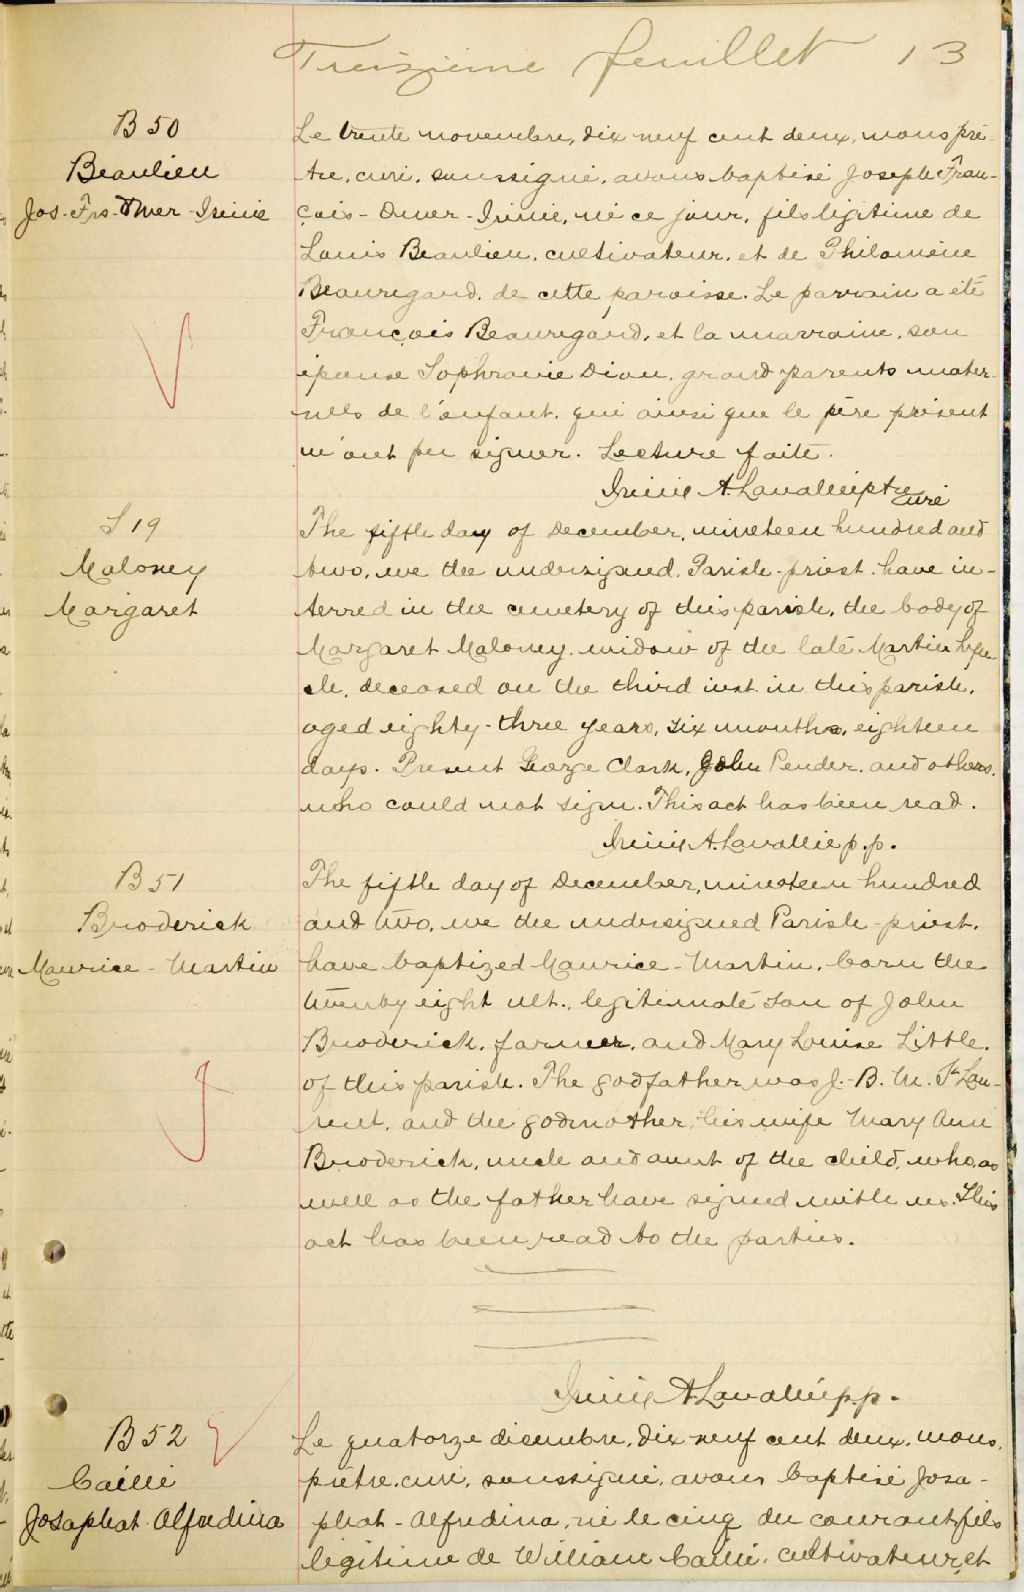 Treizième feuillet 13
B 50
Beaulieu
Jos. Frs. Omer - Irénée
Le trente novembre, dix neuf cent deux, nous prê-
tre, curé, soussigné, avons baptisé Joseph Fran-
çois - Omer - Irénée, né ce jour, fils légitime de
Louis Beaulieu, cultivateur, et de Philomène
Beauregard, de cette paroisse. Le parrain a été
François Beauregard, et la marraine, son
épouse Sophronie Dion, grand parents mater-
nels de l'enfant, qui ainsi que le père présent
n'ont pu signer. Lecture faite.
Irénée A. Lavallée ptre
curé
S 19
Maloney
Margaret
The fifth day of December, nineteen hundred and
two, we the undersigned, Parish-priest, have in-
terred in the cemetery of this parish, the body of
Margaret Maloney, widow of the late Martin
deceased on the third inst. in this parish,
aged eighty-three years, six months, eighteen
days. Present George Clark, John Pender, and others,
who could not sign. This act has been read.
Irénée A. Lavallée p.p.
B 51
Broderick
Maurice - Martin
The fifth day of December, nineteen hundred
and two, we the undersigned Parish-priest,
have baptized Maurice - Martin, born the
twenty eight ult., legitimate son of John
Broderick, farmer, and Mary Louise Little,
of this parish. The godfather was J.-B. M. St Lau-
rent, and the godmother, his wife Mary Ann
Broderick, uncle and aunt of the child, who, as
well as the father have signed with us. This
act has been read to the parties.
Irénée A. Lavallée p.p.
B 52
Caillé
Josaphat Alfrédina
Le quatorze décembre, dix neuf cent deux, nous,
prêtre, curé, soussigné, avons baptisé Josa-
phat - Alfrédina, né le cinq du courant, fils
légitime de William Caillé, cultivateur, et